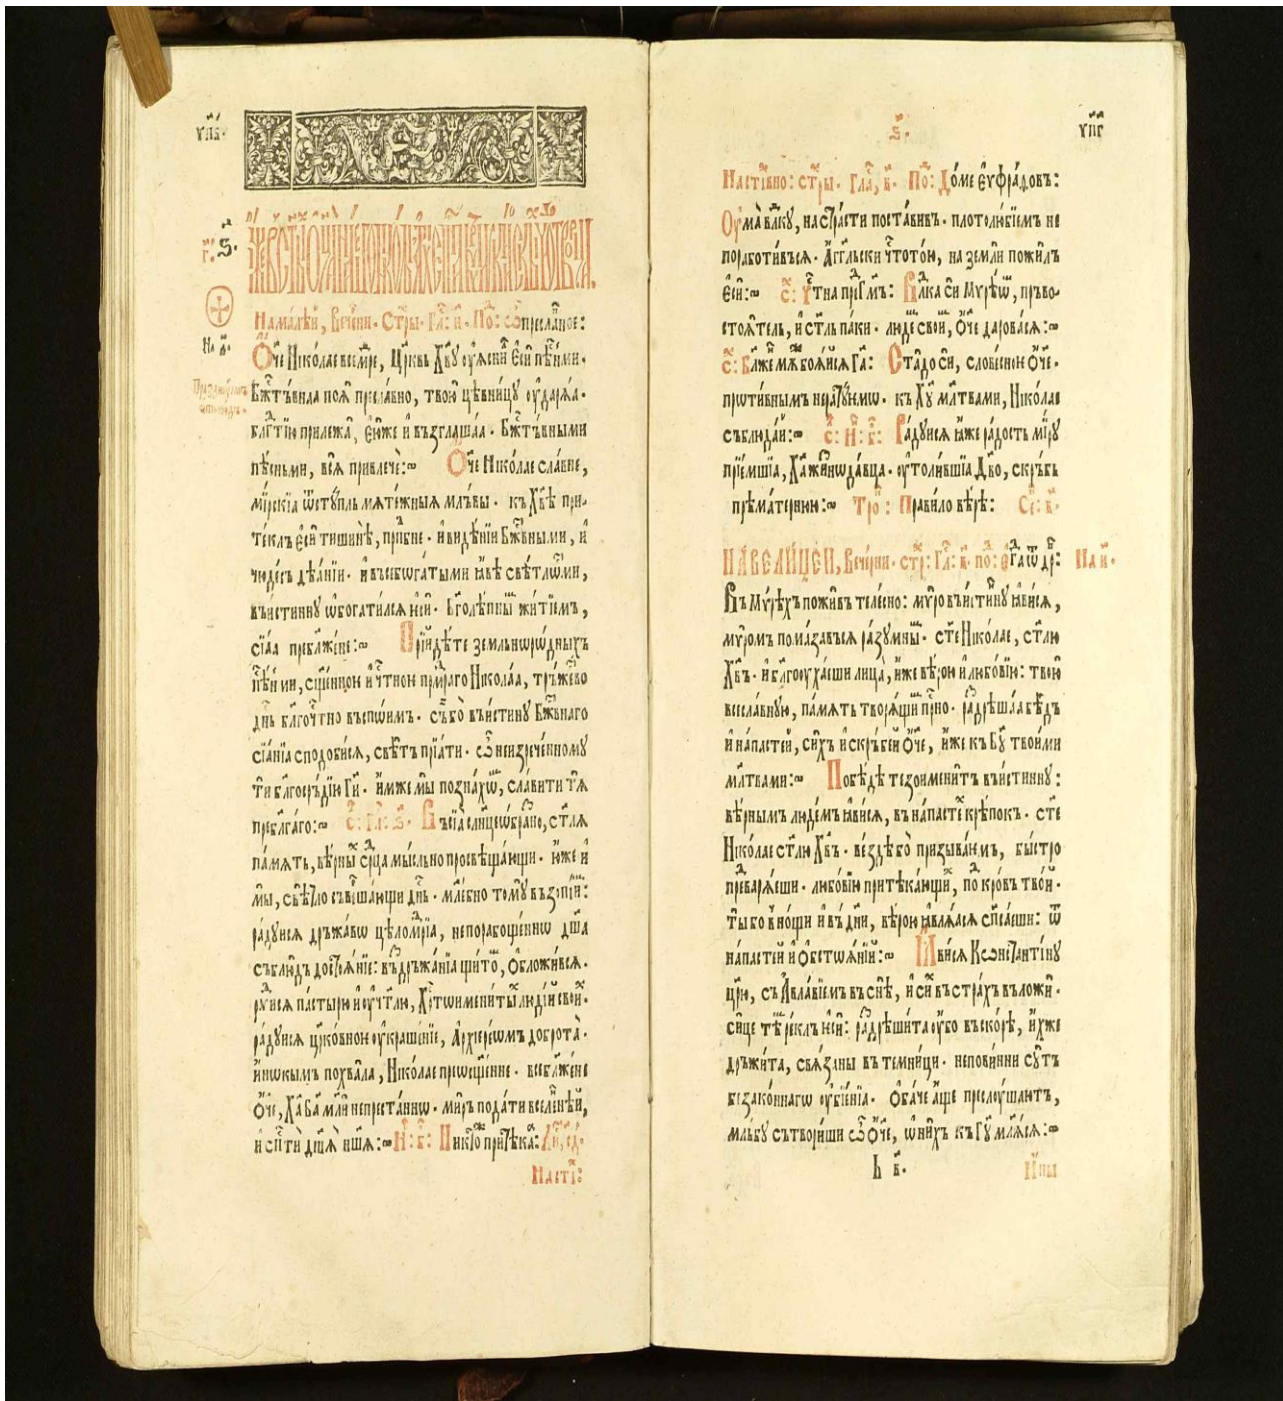 упв·
г҃· ѕ҃·
На малѣй, вечерни· Стры· Гла: и҃· По: Ѽ преславное:
На д҃·
Ѻ҃че Николае всемдре, цр҃квь Хв҃у оуяснил еси пѣньми·
Бж҃твьнаа поя преславно, твою цѣвницу оударяа·
блг҃тїю прилежа, ѐюже и възглашаа· Бж҃твьными
пѣсньми, вся привлече:~ Ѻ҃че Николае славне,
мїрскїа ѿступль мятежныя млъвы· къ Хв҃ѣ при-
теклъ еси тишинѣ, прпбне· и видѣнїи Бж҃твными, и
чюдесъ дѣанїи· и въсебогатыми явѣ свѣтлостьми,
въистинну ѡбогатился еси· Бг҃олѣпным житїемъ,
сїаа преблжене:~ Прїйдѣте земльнорѡдныхъ
пѣньми, сщ҃енною и чт҃ною прмдраго Николаа, тръжество
днь блг҃очтно въспоимъ· съ бо въистину Бж҃твьнаго
сїанїа сподобися, свѣтъ прїати· Ѽ неизреченному
ти блг҃осръдїю Ги· имже мы познахом, славити тя
преблг҃аго:~ с: гл: ѕ҃· Въсїа слнце избрано, ст҃ля
память, вѣрных срдца мысльно просвѣщающи· юже и
мы, свѣтло съвршающи днь· млебно тому възопїим:
радуися дръжаво цѣломдрїа, непорабощенно дш҃а
съблюдъ достоянїе: въздръжанїа щитом, ѻбложився·
радуися пастырю и оучт҃лю, Хр҃тоименитых людїй своих·
радуися црковною оукрашенїе, Архїереѡмъ доброта·
инокымъ похвала, Николае преосщ҃енне· всеблжене
ѻ҃че, Ха Ба мли непрестанно· миръ подати вселеннѣй,
и сп҃сти дш҃я нш҃я:~ И҃: б҃: Никтоже притѣкаа:
На сті:
ѕ҃·
упг
На стївно: стры· гла, в҃· По: Доме еуфрадовъ:
Оума влку, на страсти поставивъ· плотолюбїемъ не
поработивъся· Агг҃льски чт҃отою, на земли пожилъ
еси:~ с: Чт҃на пред Гмъ: Влка си Мурѣѡм, пръво-
стоятель, и ст҃ль паки· людем свой, ѻ҃че даровася:~
с: Блжен мж бояйся Га: Стадо си, словесною ѻ҃че·
противнымъ неразумѡ· къ Ху мл҃твами, Николае
съблюдай:~ с: и҃: б҃: Радуися яже радость мїру
прїемшїа, Ха жизнодавца· оутолившїа Дв҃о, скръбь
прѣматернюю:~ Тро: Правило вѣрѣ:
На велицеи, вечерни· стр: Гла: в҃· по: Ѐгда ѿ др: На и҃·
Въ Мурѣхъ поживъ телесно: муро въистину явися,
муромъ помазавъся разумным· ст҃е Николае, ст҃лю
Хв҃ъ· и блг҃оухаеши лица, иже вѣрою и любовїю: твою
всеславную, память творящим прно· раздрѣшаа бѣдъ
и напастей, сихъ и скръбей ѻ҃че, иже къ Бу твоими
мл҃твами:~ Побѣдѣ тезоименитъ въистинну:
вѣрнымъ людемъ явися, въ напастех крѣпокъ· ст҃е
Николае ст҃лю Хв҃ъ· вездѣ бо призываемъ, быстро
предваряеши· любовїю притѣкающий, под кровъ твой·
ты бо в нощи и въ дни, вѣрою являася сп҃саеши: ѿ
напастей и ѻбстоянїй:~ Явися Кѡнстантину
црю, съ Авлавїемъ въ снѣ, и сих въ страхъ въложи·
сице тѣм реклъ еси: раздрѣшита оубо въскорѣ, ихже
дръжита, связаны въ темници· неповинни сутъ
безаконнаго оубїенїа· Обаче аще преслоушаютъ,
мльбу сътвориши Ѽ ѻ҃че, ѡ нихъ къ Гу мляся:~
Ь в҃· Ины